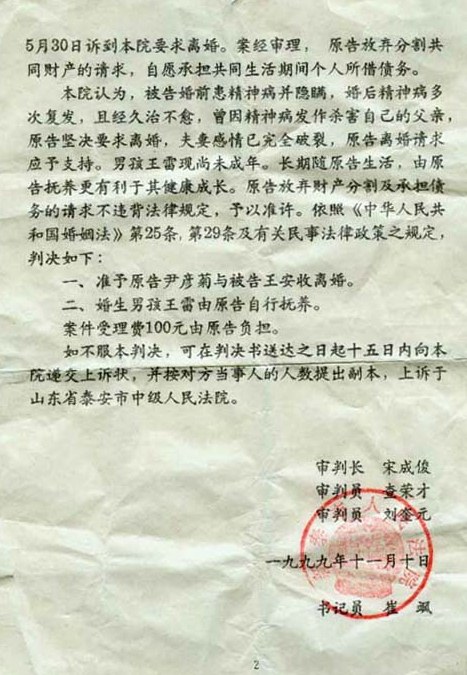 5月30日诉到本院要求离婚。案经审理， 原告放弃分割共
同财产的请求，自愿承担共同生活期间个人所借债务。
本院认为，被告婚前患精神病并隐瞒，婚后精神病多
次复发，且经久治不愈，曾因精神病发作杀害自己的父亲，
原告坚决要求离婚，夫妻感情已完全破裂，原告离婚请求
应予支持。男孩王雷现尚未成年。长期随原告生活，由原
告抚养更有利于其健康成长。原告放弃财产分割及承担债
务的请求不违背法律规定，予以准许。依照《中华人民共
和国婚姻法》第25条，第29条及有关民事法律政策之规定，
判决如下：
一、准予原告尹彦菊与被告王安收离婚。
二、婚生男孩王雷由原告自行抚养。
案件受理费100元由原告负担。
如不服本判决，可在判决书送达之日起十五日内向本
院递交上诉状，并按对方当事人的人数提出副本，上诉于
山东省泰安市中级人民法院。
审判长 宋成俊
审判员 查荣才
审判员 刘奎元
一九九九年十一月十日
书记员 崔飒
2